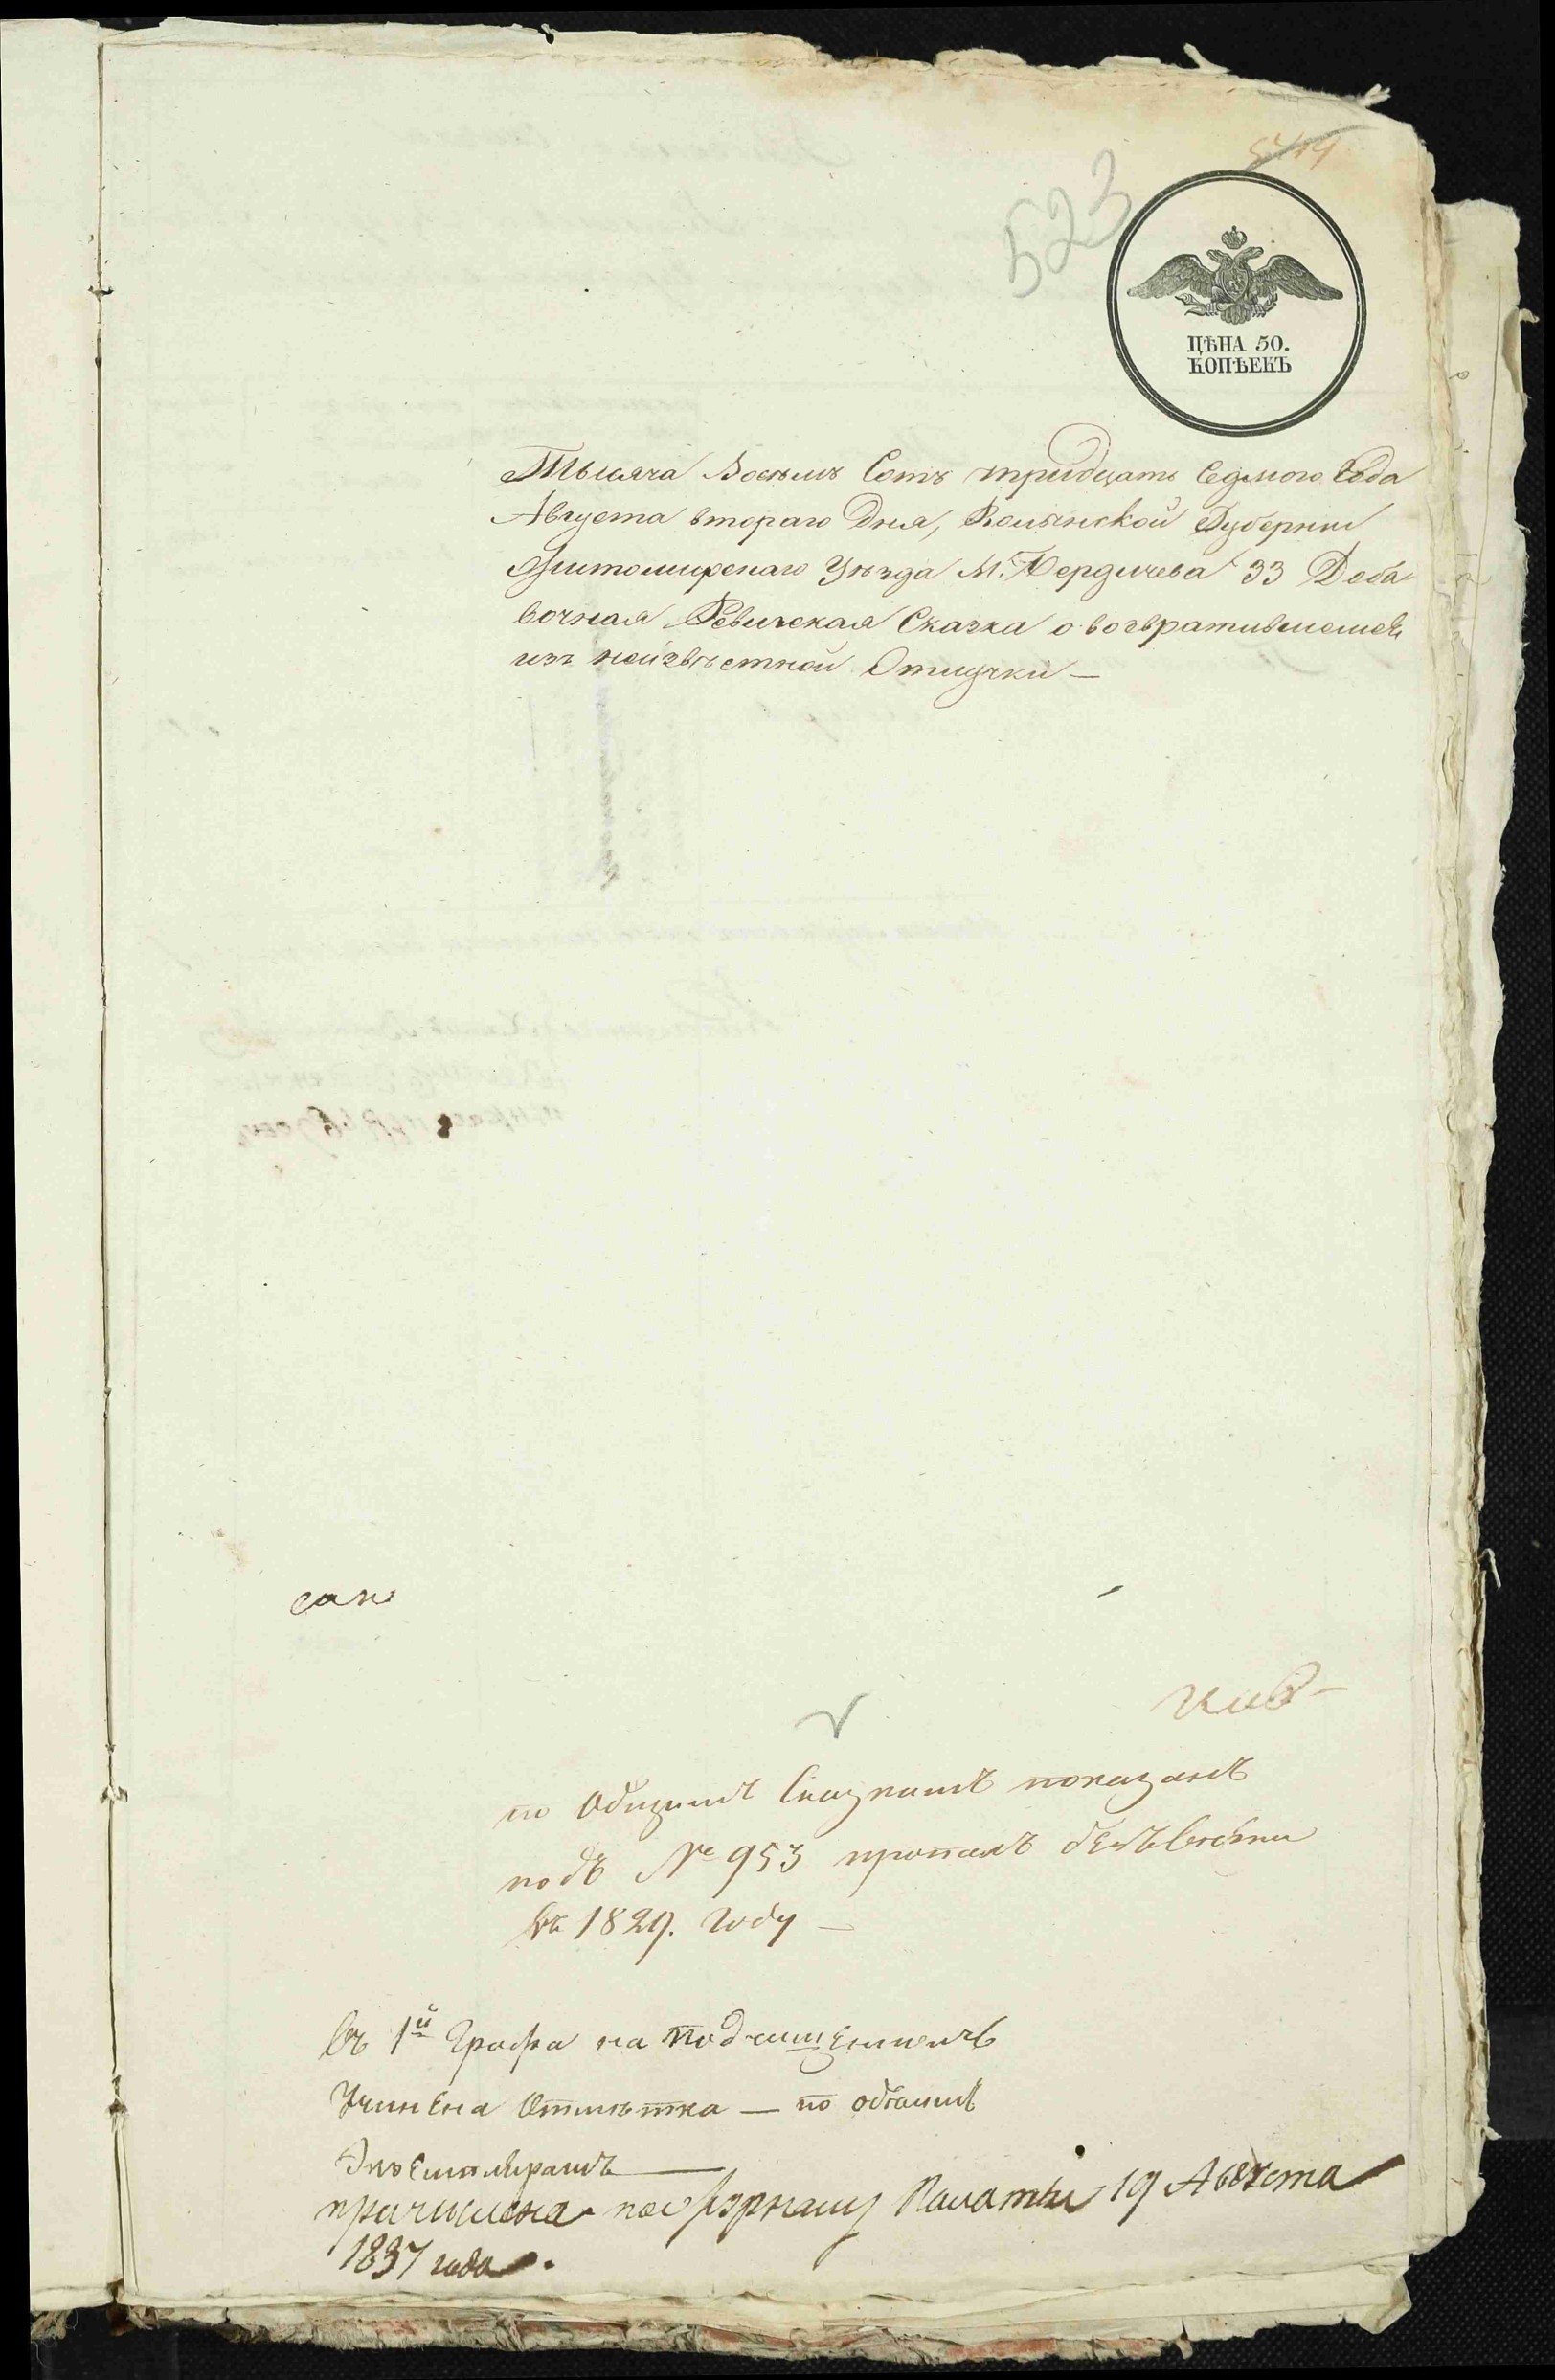 523
ЦѢНА 50.
КОПѢЕКЪ
Тысяча Восемъ Сотъ тридцать Седмого Года
Августа втораго Дня, Волынской Губернии
Житомирскаго Уѣзда М. Бердичева 33 Доба
вочная Ревизская Сказка о возвратившемся
изъ неизвѣстной Отлучки —
по Общимъ Сказкамъ показанъ
подъ № 953 пропалъ безъ вѣсти
въ 1829. Году —
въ 1й Графа на подлинномъ
Учинена Отмѣтка — по обоимъ
Экземплярамъ —
причислена по журналу Палаты 19 Августа
1837 года.